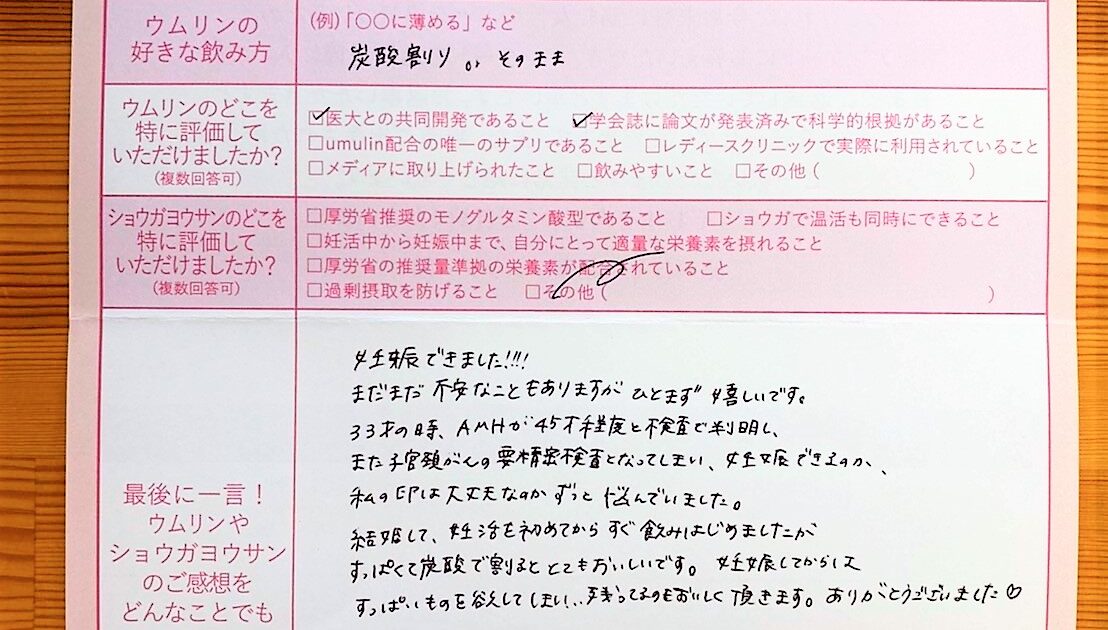 ウムリンの
好きな飲み方
(例)「〇〇に薄める」など
炭酸割り or そのまま
ウムリンのどこを
特に評価して
いただけましたか?
(複数回答可)
☑医大との共同開発であること ☑学会誌に論文が発表済みで科学的根拠があること
□umulin配合の唯一のサプリであること □レディースクリニックで実際に利用されていること
□メディアに取り上げられたこと □飲みやすいこと □その他 ( )
ショウガヨウサンのどこを
特に評価して
いただけましたか?
(複数回答可)
□厚労省推奨のモノグルタミン酸型であること □ショウガで温活も同時にできること
□妊活中から妊娠中まで、自分にとって適量な栄養素を摂れること
□厚労省の推奨量準拠の栄養素が配合されていること
□過剰摂取を防げること □その他 ( )
最後に一言!
ウムリンや
ショウガヨウサン
のご感想を
どんなことでも
妊娠できました!!!
まだまだ不安なこともありますがひとまず嬉しいです。
33才の時、AMHが45才程度と検査で判明し、
また子宮頸がんの要精密検査となってしまい、妊娠できるのか、
私の卵は大丈夫なのかずっと悩んでいました。
結婚して、妊活を初めてからすぐ飲みはじめましたが
すっぱくて炭酸で割るととてもおいしいです。妊娠してからは
すっぱいものを欲してしまい..残ってるのもおいしく頂きます。ありがとうございました♡